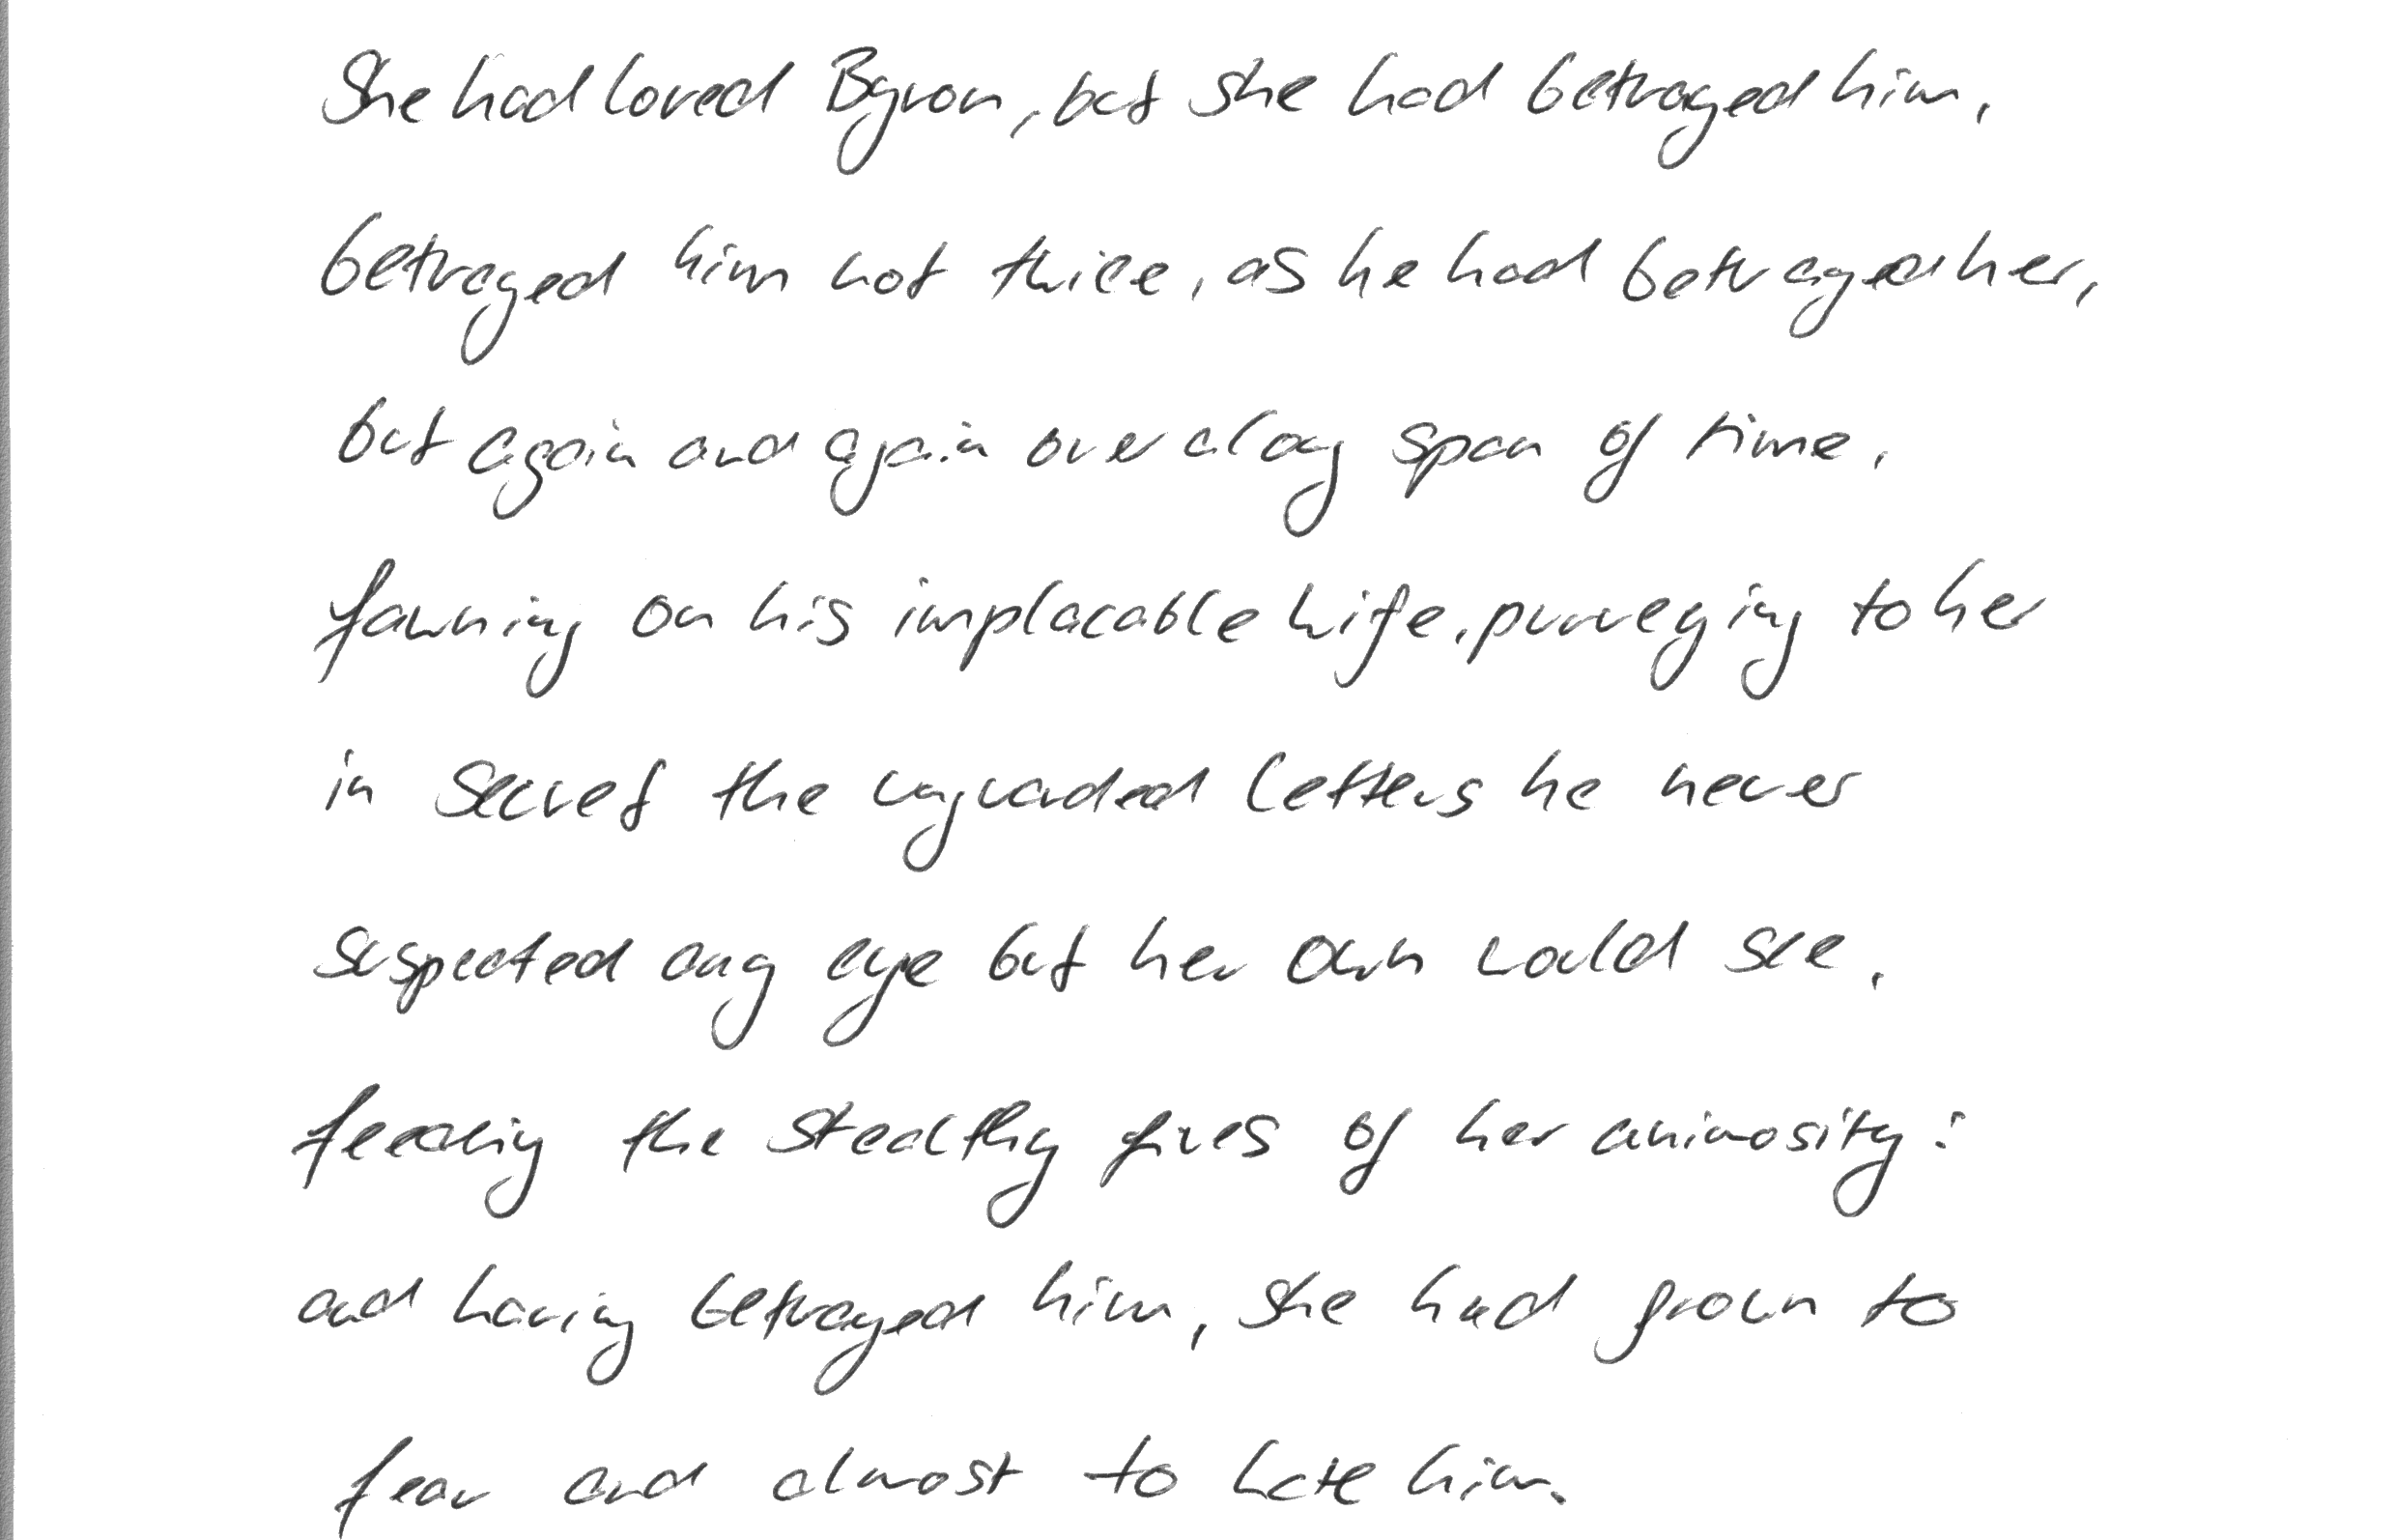 She had loved Byron, but she had betrayed him,
betrayed him not twice, as he had betrayed her,
but again and again over a long span of time,
fawning on his implacable wife, purveying to her
in secret the unguarded letters he never
suspected any eye but her own would see,
feeding the stealthy fires of her animosity:
and having betrayed him, she had grown to
fear and almost to hate him.